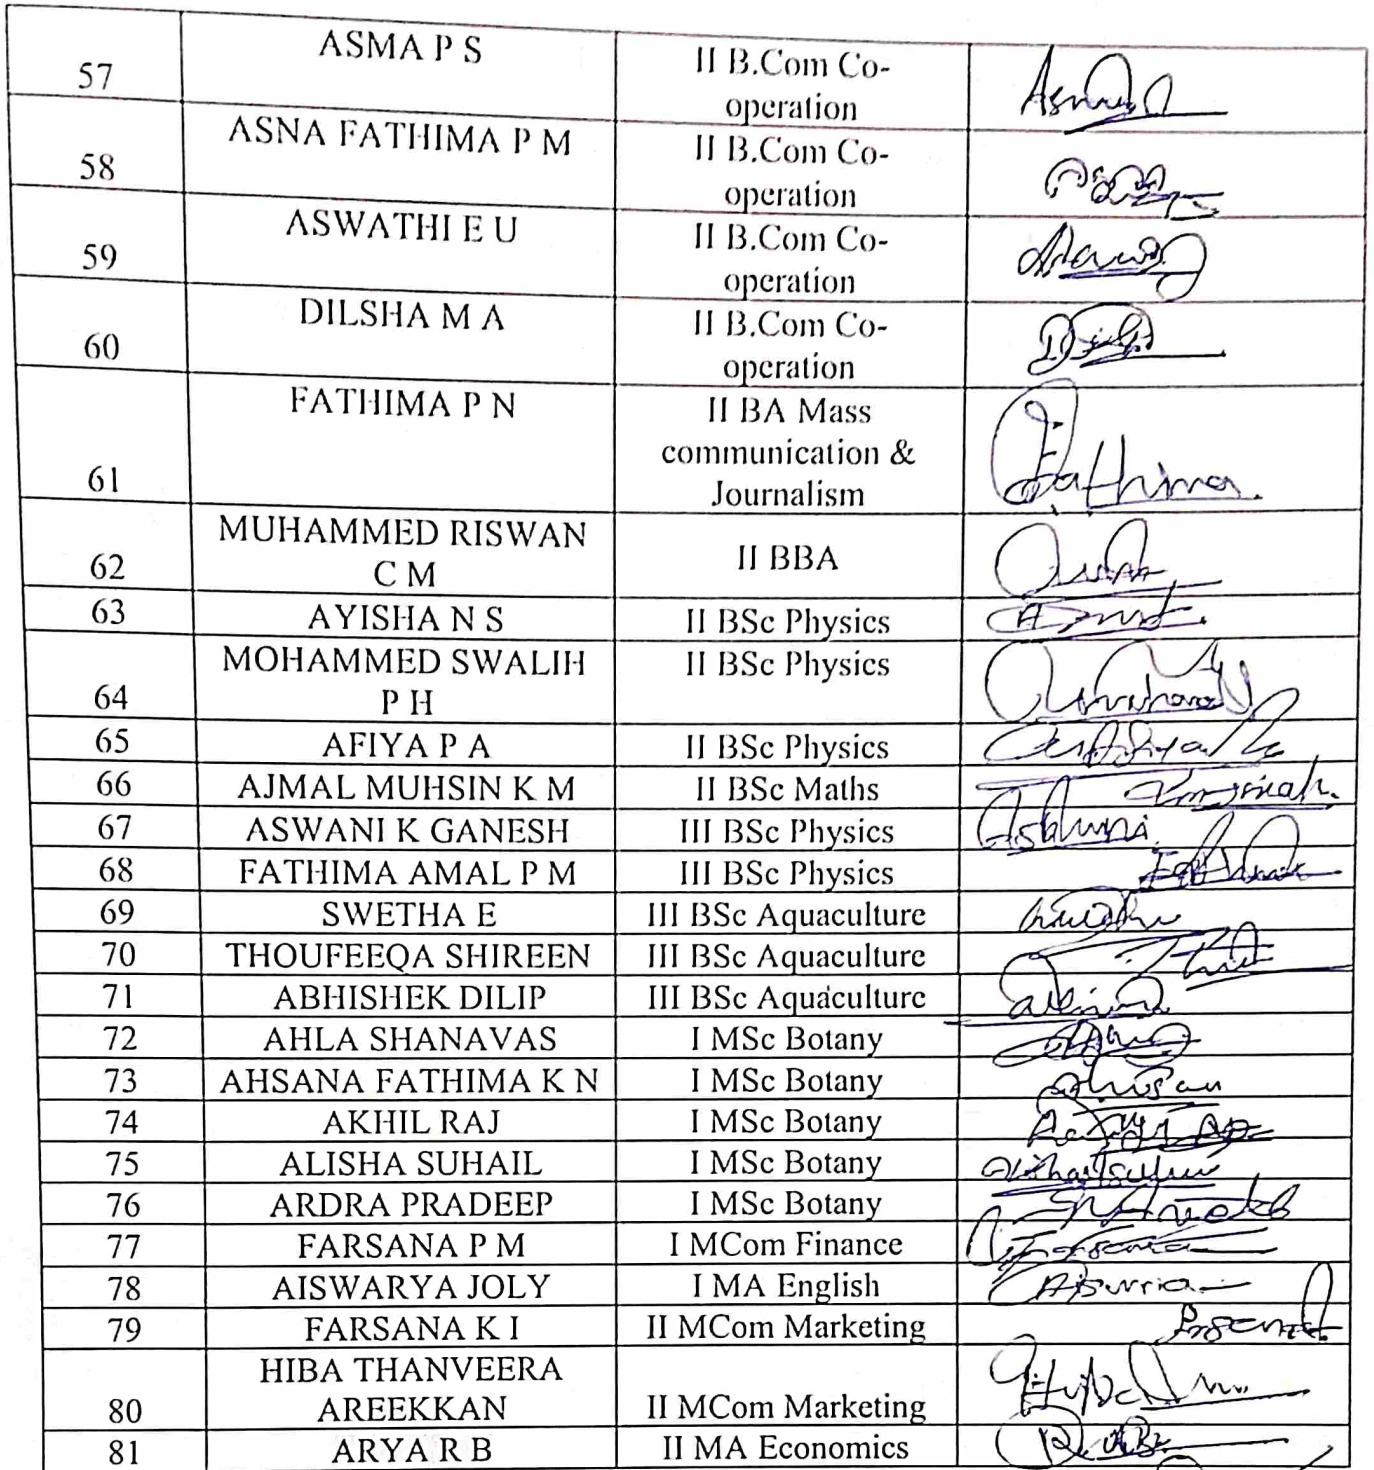 57 ASMA P S II B.Com Co-
operation
58 ASNA FATHIMA P M II B.Com Co-
operation
59 ASWATHI E U II B.Com Co-
operation
60 DILSHA M A II B.Com Co-
operation
61 FATHIMA P N II BA Mass
communication &
Journalism Fathima.
62 MUHAMMED RISWAN
C M II BBA
63 AYISHA N S II BSc Physics
64 MOHAMMED SWALIH
P H II BSc Physics
65 AFIYA P A II BSc Physics
66 AJMAL MUHSIN K M II BSc Maths
67 ASWANI K GANESH III BSc Physics
68 FATHIMA AMAL P M III BSc Physics
69 SWETHA E III BSc Aquaculture
70 THOUFEEQA SHIREEN III BSc Aquaculture
71 ABHISHEK DILIP III BSc Aquaculture
72 AHLA SHANAVAS I MSc Botany
73 AHSANA FATHIMA K N I MSc Botany
74 AKHIL RAJ I MSc Botany
75 ALISHA SUHAIL I MSc Botany
76 ARDRA PRADEEP I MSc Botany
77 FARSANA P M I MCom Finance
78 AISWARYA JOLY I MA English
79 FARSANA K I II MCom Marketing
80 HIBA THANVEERA
AREEKKAN II MCom Marketing
81 ARYA R B II MA Economics